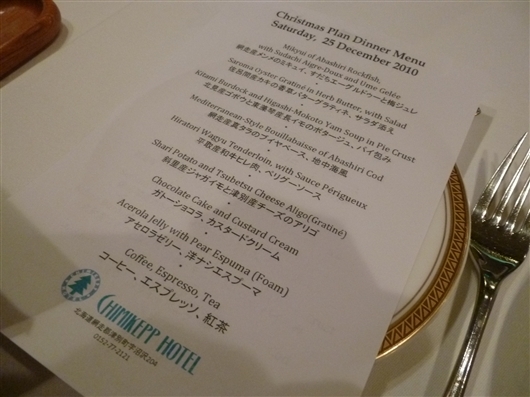 Christmas Plan Dinner Menu
Saturday, 25 December 2010
Mikyui of Abashiri Rockfish,
with Sudachi Aigre-Doux and Ume Gelée
網走産メンメのミキュイ、すだちエーグルドゥーと梅ジュレ
•
Saroma Oyster Gratiné in Herb Butter, with Salad
佐呂間産カキの香草バターグラティネ、サラダ添え
•
Kitami Burdock and Higashi-Mokoto Yam Soup in Pie Crust
北見産ゴボウと東藻琴産長イモのポタージュ、パイ包み
•
Mediterranean-Style Bouillabaisse of Abashiri Cod
網走産真タラのブイヤベース、地中海風
•
Hiratori Wagyu Tenderloin, with Sauce Périgueux
平取産和牛ヒレ肉、ペリグーソース
•
Shari Potato and Tsubetsu Cheese Aligo(Gratiné)
斜里産ジャガイモと津別産チーズのアリゴ
•
Chocolate Cake and Custard Cream
ガトーショコラ、カスタードクリーム
•
Acerola Jelly with Pear Espuma (Foam)
アセロラゼリー、洋ナシエスプーマ
•
Coffee, Espresso, Tea
コーヒー、エスプレッソ、紅茶
CHIMIKEPP HOTEL
北海道網走郡津別町字沼沢204
0152-77-2121